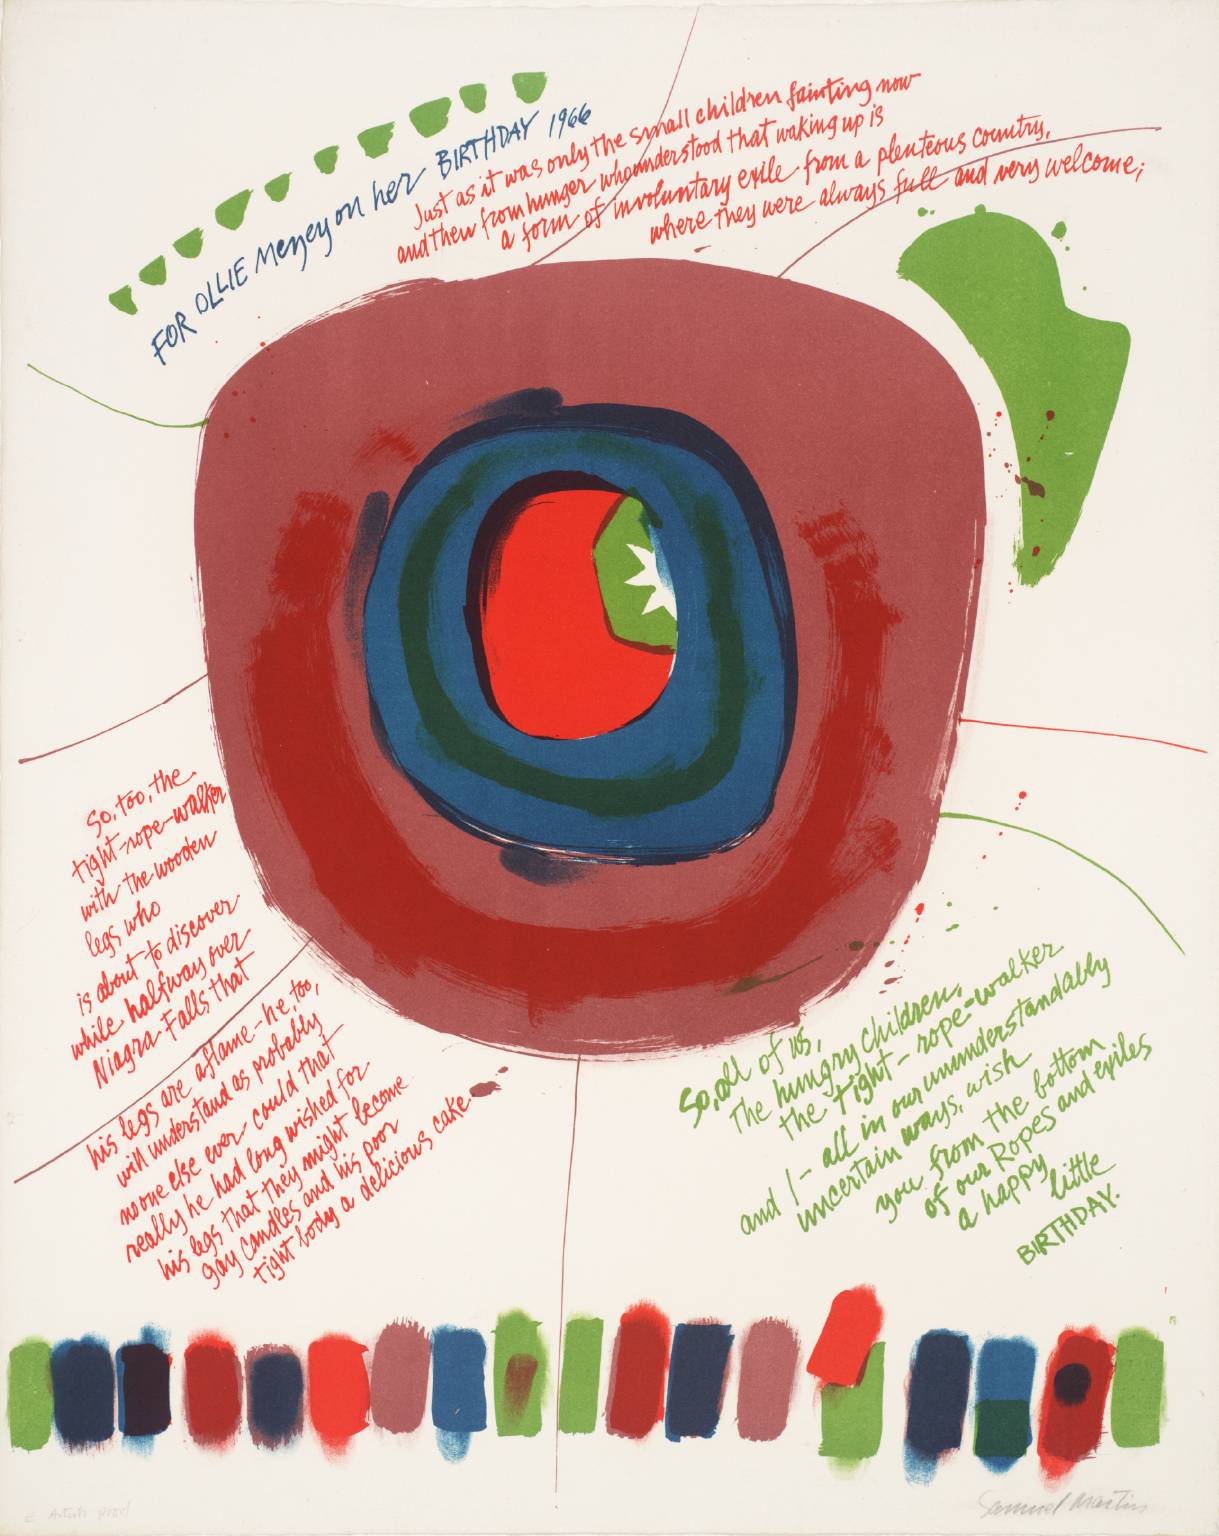 FOR OLLIE Mezey on her BIRTHDAY 1966
Just as it was only the small children fainting now
and then from hunger who understood that waking up is
a form of involuntary exile from a plenteous country,
where they were always full and very welcome;
So, too, the
tight-rope-walker
with the wooden
legs who
is about to discover
while halfway over
Niagra Falls that
his legs are aflame - he, too,
will understand as probably
no one else ever could that
really he had long wished for
his legs that they might become
gay candles and his poor
tight body a delicious cake.
So, all of us,
The hungry children,
the tight-rope-walker
and I - all in our ununderstandably
uncertain ways, wish
you from the bottom
of our Ropes and exiles
a happy
little
BIRTHDAY.
Artist's proof
Samuel Martin